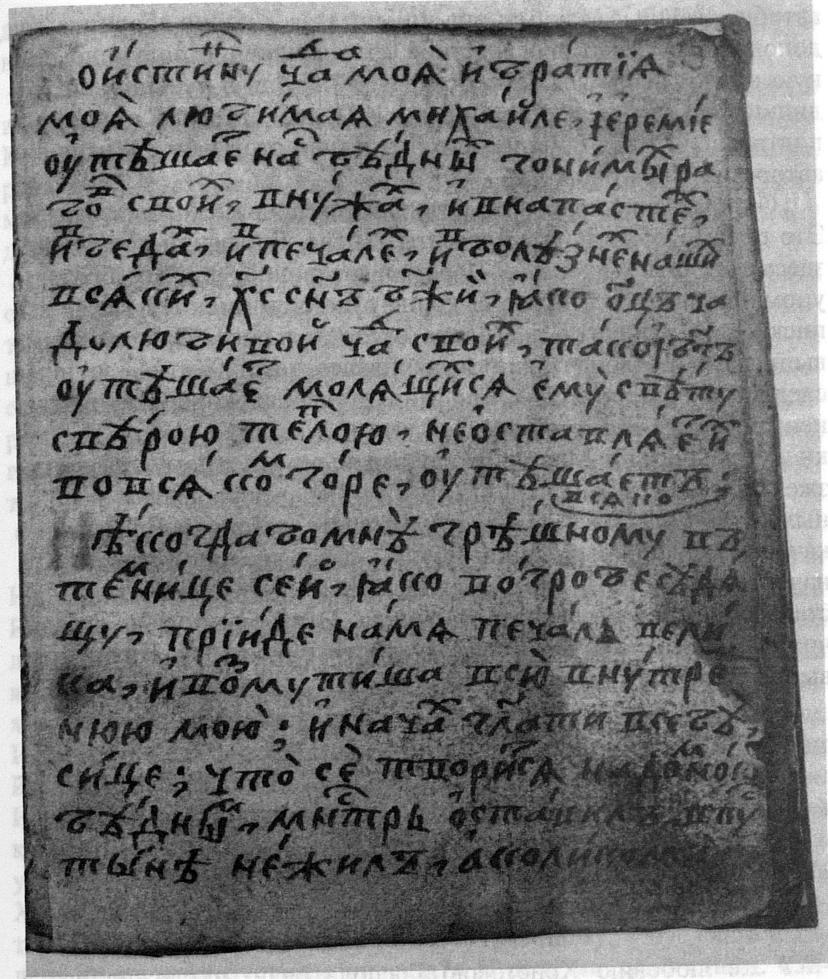 Ои́стинну ча́да моѧ̀ и҆ бра́тїѧ
моѧ̀ люби́маѧ миха́йле, і҆еремі́е
оу҆тѣша́е на́с бѣ́дны гони́мы ра
бо́в свои́х, вну́жах, и҆ внапа́стех,
и҆ в беда́х, и҆ в печа́лех, и҆ в болѣ́знех на́ших
всѧ́ких, хс҃ сн҃ъ бж҃и, ꙗ҆ко о҆ц҃ъ ча
долюби́вой ча́д свои́х, та́ко и҆ бг҃ъ
оу҆тѣша́ет молѧ́щихсѧ є҆му̀ свѣ́ту
свѣ́рою те́плою, неоставлѧ́ет и҆х
вовсѧ́ком го́ре, оу҆тѣша́етъ:
всѧко
Нѣ́когда бо мнѣ̀ грѣ́шному въ
темни́це се́й, ꙗ҆ко во́гробе сѣдѧ́
щу, прїи́де намѧ̀ печа́ль вели́
ка, и҆ возмути́ша всю̀ вну́тре
нюю мою̀; и҆ нача́х гл҃ати всебѣ̀,
си́це; что̀ сѐ твори́тсѧ надомно́ю
бѣ́дным, мнтрь ѡ҆ста́вилъ, впу
ты́нѣ не́жилъ, а҆колико